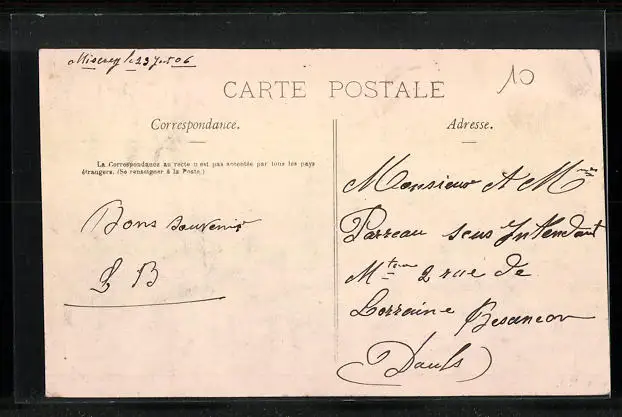 Miserey le 23 7 06
10
CARTE POSTALE
Correspondance.
Adresse.
La Correspondance au recto n'est pas acceptée par tous les pays
étrangers. (Se renseigner à la Poste.)
Bons souvenirs
L B
Monsieur et Mme
Parreau sous Intendant
Mtaire 2 rue de
Lorraine Besancon
(Doubs)